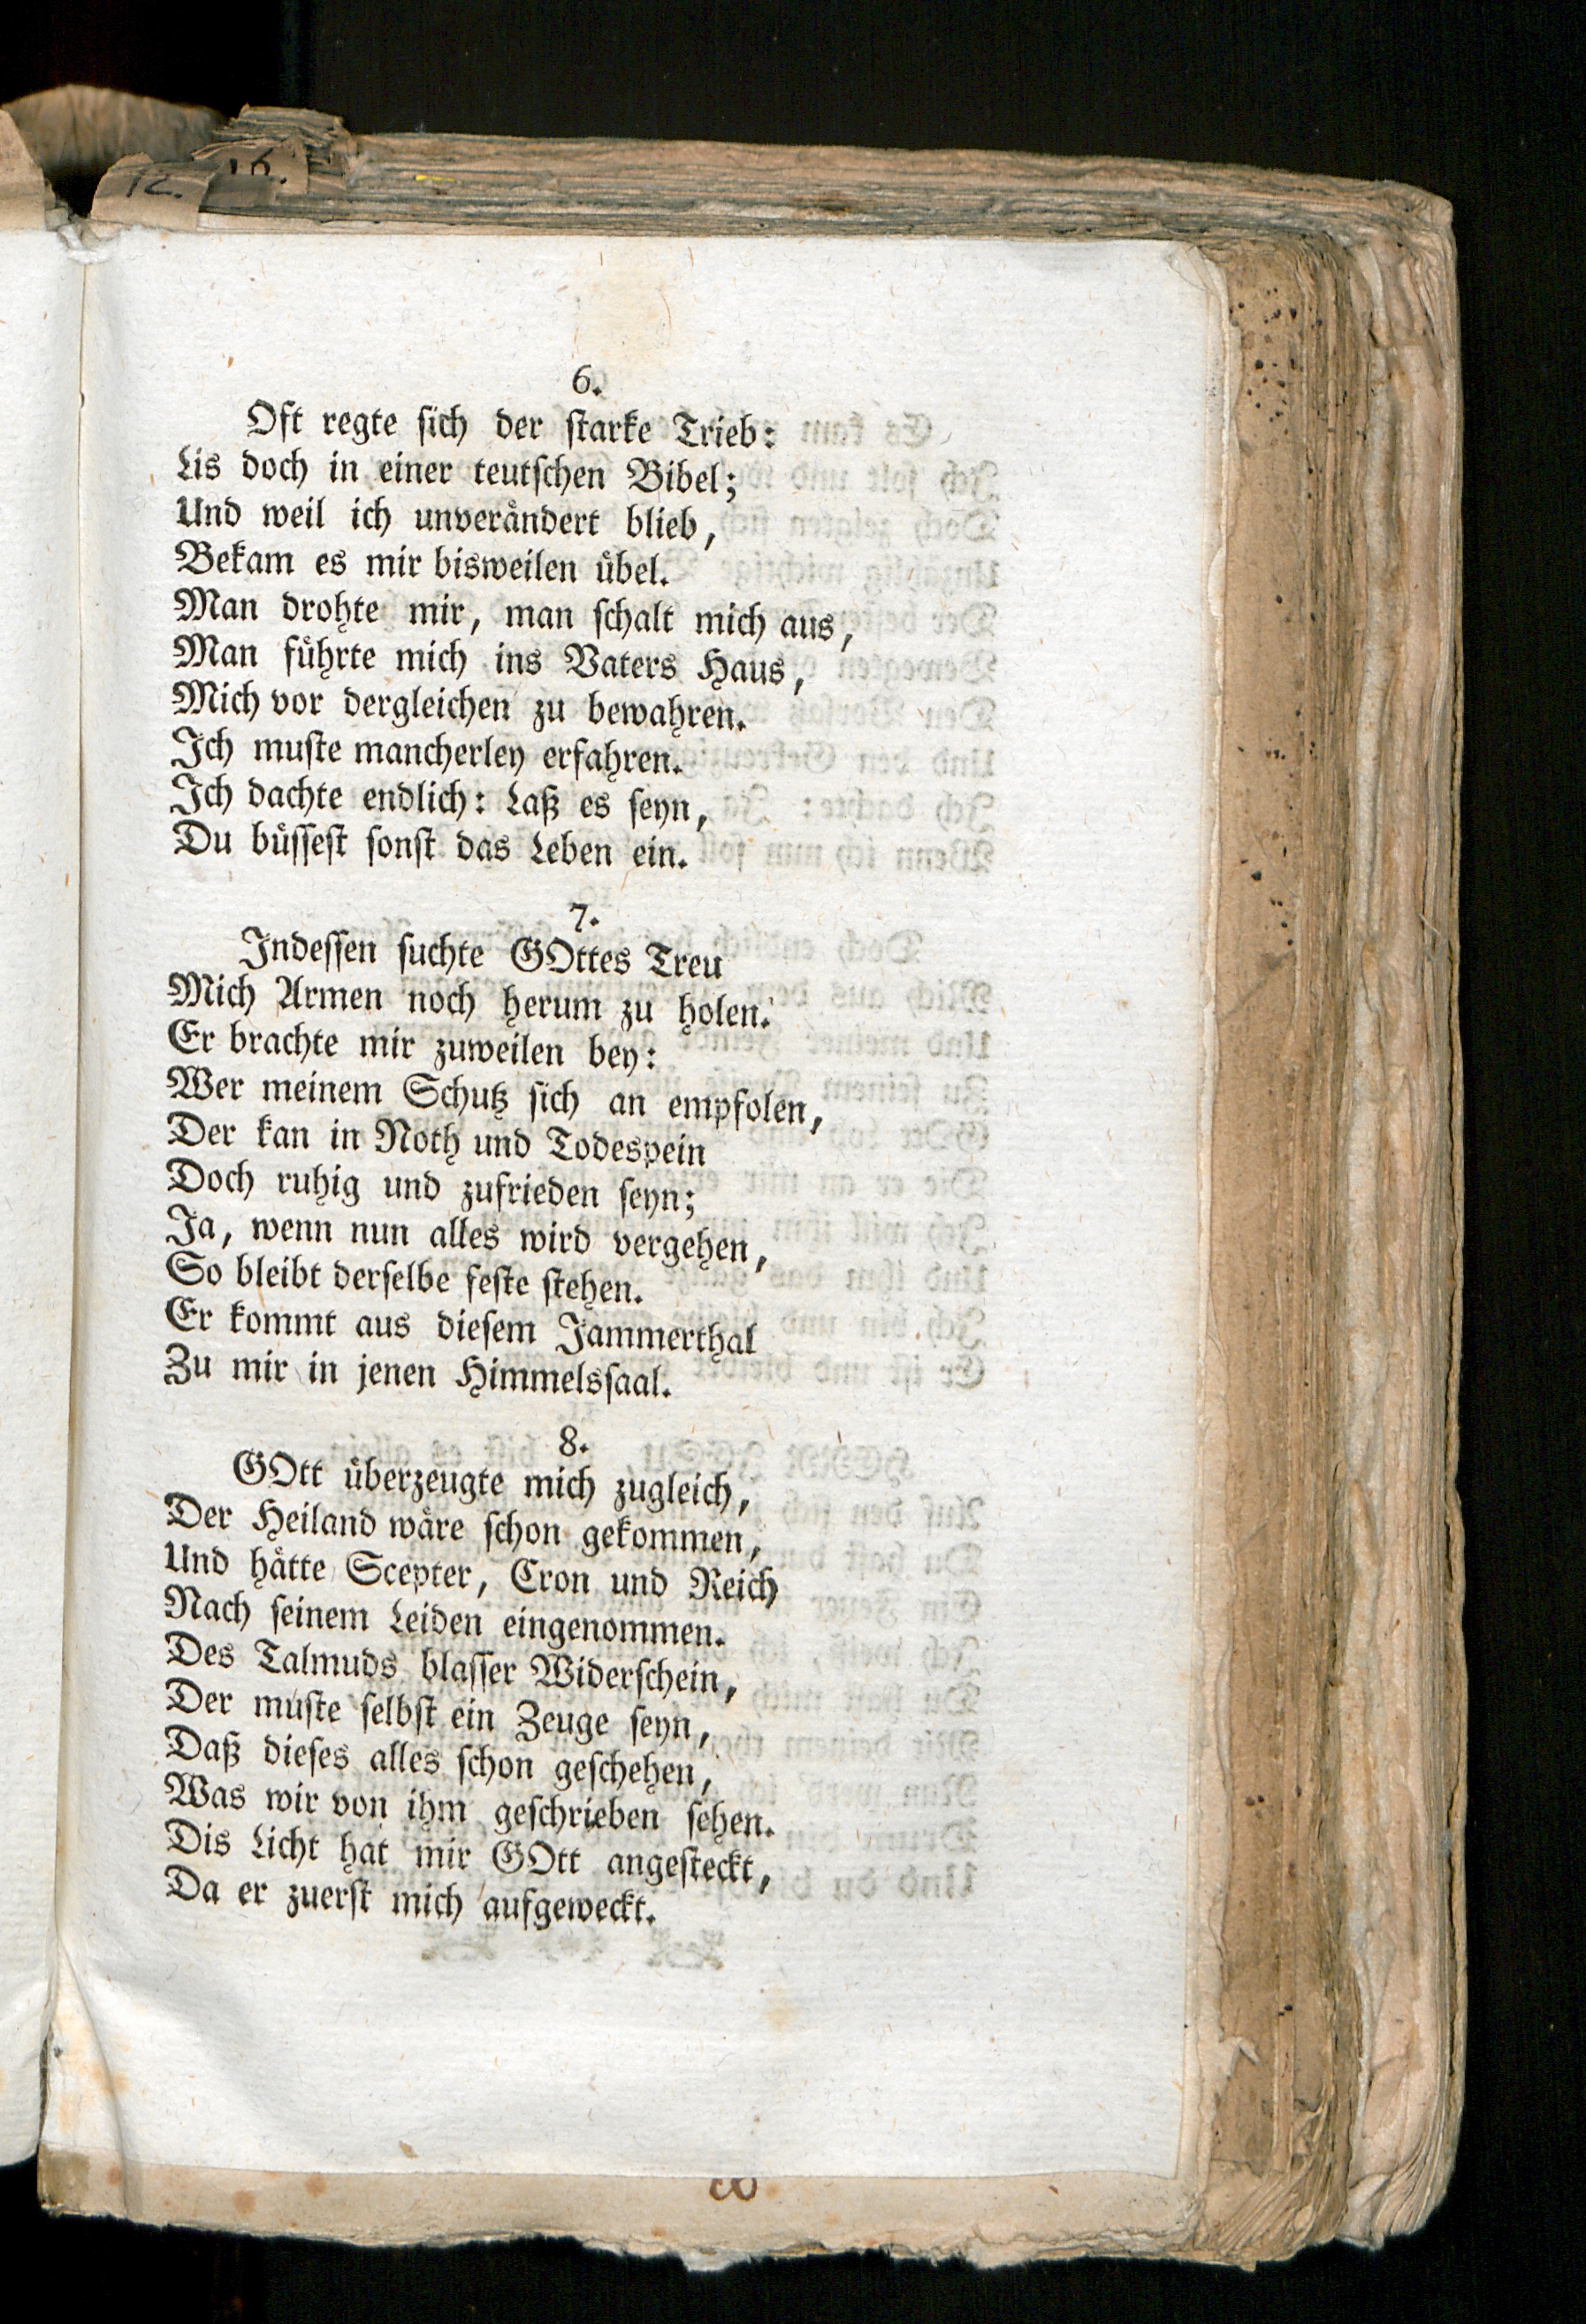 12.
16.
6.
Oft regte ſich der ſtarke Trieb:
Lis doch in einer teutſchen Bibel;
Und weil ich unveraͤndert blieb,
Bekam es mir bisweilen uͤbel.
Man drohte mir, man ſchalt mich aus,
Man fuͤhrte mich ins Vaters Haus,
Mich vor dergleichen zu bewahren.
Ich muſte mancherley erfahren.
Ich dachte endlich: Laß es ſeyn,
Du buͤſſeſt ſonſt das Leben ein.
7.
Indeſſen ſuchte GOttes Treu
Mich Armen noch herum zu holen.
Er brachte mir zuweilen bey:
Wer meinem Schutz ſich an empfolen,
Der kan in Noth und Todespein
Doch ruhig und zufrieden ſeyn;
Ja, wenn nun alles wird vergehen,
So bleibt derſelbe feſte ſtehen.
Er kommt aus dieſem Jammerthal
Zu mir in jenen Himmelsſaal.
8.
GOtt uͤberzeugte mich zugleich,
Der Heiland waͤre ſchon gekommen,
Und haͤtte Scepter, Cron und Reich
Nach ſeinem Leiden eingenommen.
Des Talmuds blaſſer Widerſchein,
Der muſte ſelbſt ein Zeuge ſeyn,
Daß dieſes alles ſchon geſchehen,
Was wir von ihm geſchrieben ſehen.
Dis Licht hat mir GOtt angeſteckt,
Da er zuerſt mich aufgeweckt.